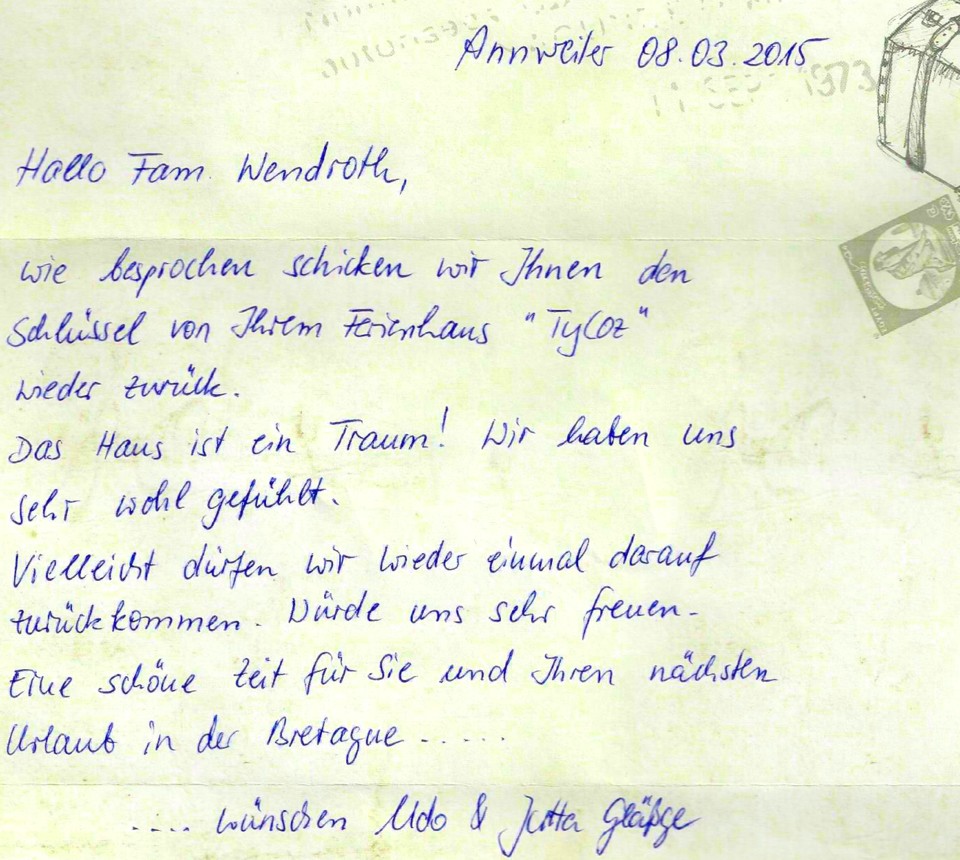 Annweiler 08.03.2015
1973
Hallo Fam. Wendroth,
wie besprochen schicken wir Ihnen den
Schlüssel von Ihrem Ferienhaus "TyCoz"
wieder zurück.
Das Haus ist ein Traum! Wir haben uns
sehr wohl gefühlt.
Vielleicht dürfen wir wieder einmal darauf
zurückkommen. Würde uns sehr freuen.
Eine schöne Zeit für Sie und Ihren nächsten
Urlaub in der Bretagne .....
.... wünschen Udo & Jutta Gläßge